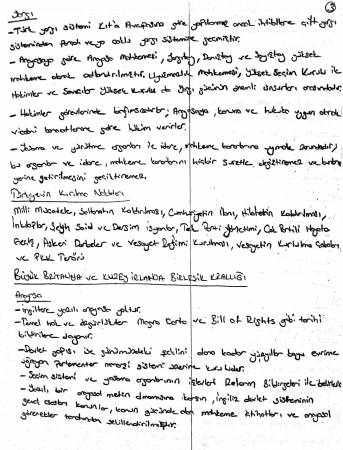 3
Yargı
- Türk yargı sistemi Kıta Avrupasına göre yapılanmış ancak ihtilallere çift yargı
sisteminden yargı sistemine geçmiştir.
- Anayasaya göre Anayasa Mahkemesi, Yargıtay, Danıştay ve Sayıştay yüksek
mahkeme olarak adlandırılmıştır. Uyuşmazlık Mahkemesi, Yüksek Seçim Kurulu ile
Hakimler ve Savcılar Yüksek Kurulu da yargı gücünün önemli unsurları arasındadır.
- Hakimler görevlerinde bağımsızdırlar; Anayasaya, kanuna ve hukuka uygun olarak
vicdani kanaatlerine göre hüküm verirler.
- Yasama ve yürütme organları ile idare, mahkeme kararlarına uymak zorundadır;
bu organlar ve idare, mahkeme kararlarını hiçbir suretle değiştiremez ve bunların
yerine getirilmesini geciktiremez.
Türkiyenin Kırılma Noktaları
Milli Mücadele, Saltanatın Kaldırılması, Cumhuriyetin İlanı, Hilafetin Kaldırılması,
İnkılaplar, Şeyh Said ve Dersim isyanları, Tek Parti Yönetimi, Çok Partili Hayata
Geçiş, Askeri Darbeler ve Vesayet Rejimi Kurulması, Vesayetin Kurtulma Çabaları
ve PKK Terörü
BÜYÜK BRİTANYA VE KUZEY İRLANDA BİRLEŞİK KRALLIĞI
Anayasa
- İngiltere yazılı anayasa yoktur.
- Temel hak ve özgürlükler Magna Carta ve Bill of Rights gibi tarihi
bildirilere dayanır.
- Devlet yapısı ise günümüzdeki şeklini alana kadar yüzyıllar boyu evrime
uğrayan parlamenter monarşi sistemi üzerine kuruludur.
- Seçim sistemi ve yasama organlarının işlevleri Reform Bildirgeleri ile
- Yazılı bir anayasal metnin olmamasına karşın, İngiliz devlet sisteminin
genel esasları kanunlar, kanun gücünde olan mahkeme içtihatları ve anayasal
görenekler tarafından şekillendirilmiştir.